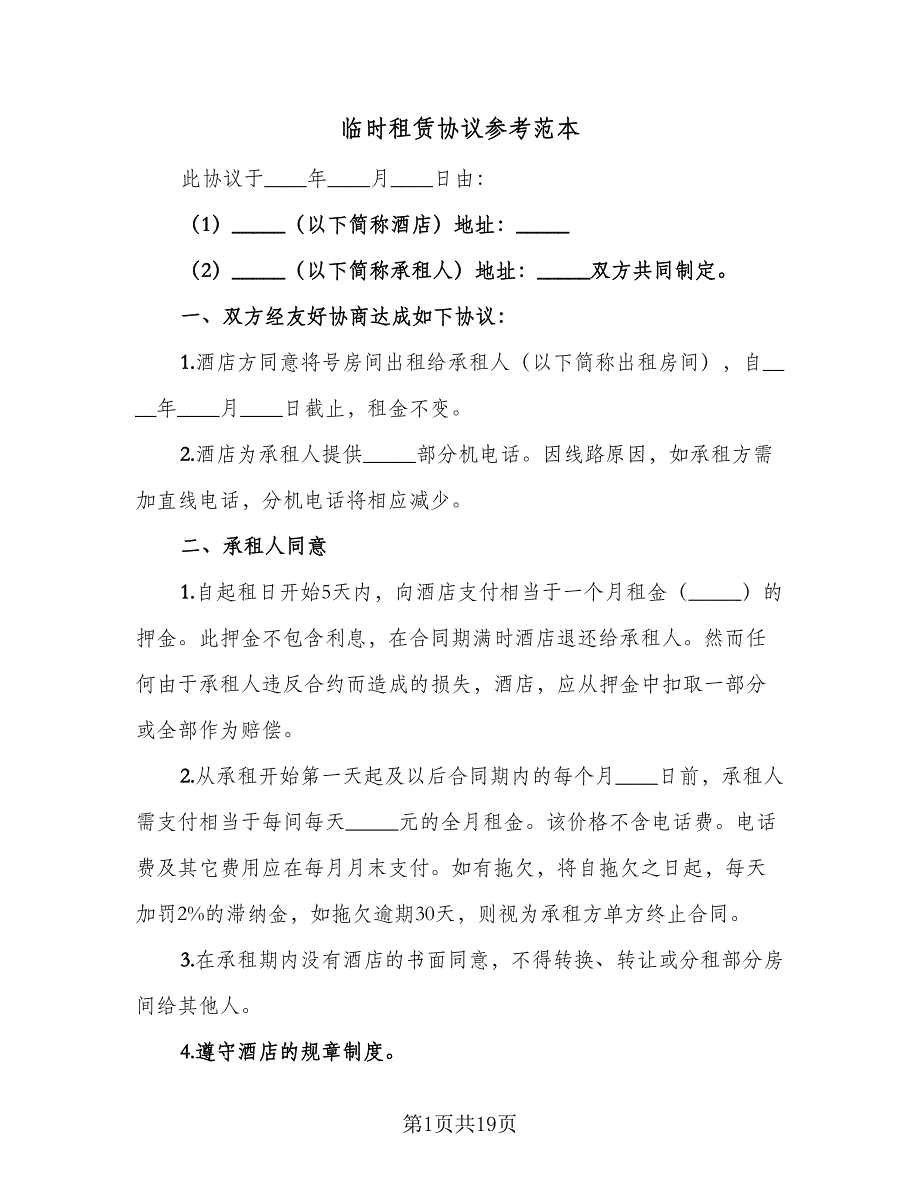 临时租赁协议参考范本
此协议于____年____月____日由：
（1）_____（以下简称酒店）地址：_____
（2）_____（以下简称承租人）地址：_____双方共同制定。
一、双方经友好协商达成如下协议：
1.酒店方同意将号房间出租给承租人（以下简称出租房间），自__
__年____月____日截止，租金不变。
2.酒店为承租人提供_____部分机电话。因线路原因，如承租方需
加直线电话，分机电话将相应减少。
二、承租人同意
1.自起租日开始5天内，向酒店支付相当于一个月租金（_____）的
押金。此押金不包含利息，在合同期满时酒店退还给承租人。然而任
何由于承租人违反合约而造成的损失，酒店，应从押金中扣取一部分
或全部作为赔偿。
2.从承租开始第一天起及以后合同期内的每个月____日前，承租人
需支付相当于每间每天_____元的全月租金。该价格不含电话费。电话
费及其它费用应在每月月末支付。如有拖欠，将自拖欠之日起，每天
加罚2%的滞纳金，如拖欠逾期30天，则视为承租方单方终止合同。
3.在承租期内没有酒店的书面同意，不得转换、转让或分租部分房
间给其他人。
4.遵守酒店的规章制度。
第1页共19页